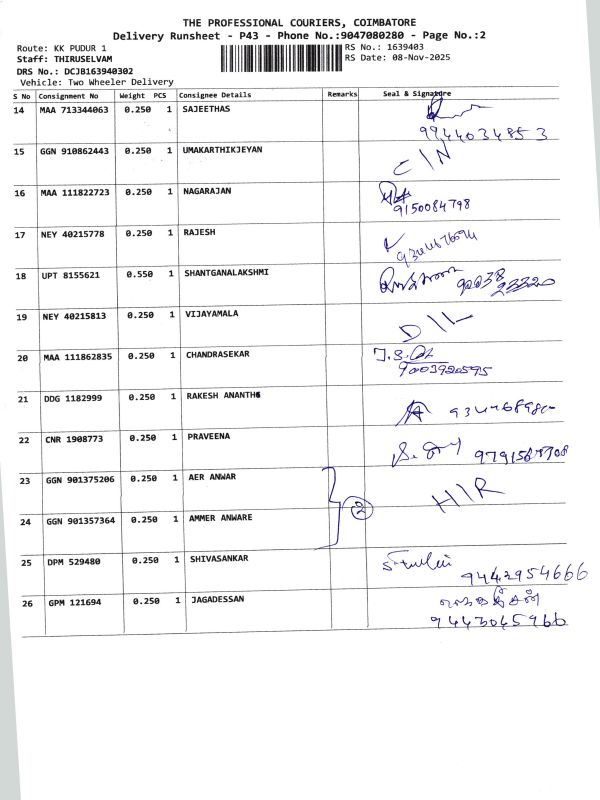 THE PROFESSIONAL COURIERS, COIMBATORE
Delivery Runsheet - P43 - Phone No.:9047080280 - Page No.:2
Route: KK PUDUR 1 RS No.: 1639403
Staff: THIRUSELVAM RS Date: 08-Nov-2025
DRS No.: DCJB163940302
Vehicle: Two Wheeler Delivery
S No Consignment No Weight PCS Consignee Details Remarks Seal & Signature
14 MAA 713344063 0.250 1 SAJEETHAS
9944034853
15 GGN 910862443 0.250 1 UMAKARTHIKJEYAN C/N
16 MAA 111822723 0.250 1 NAGARAJAN
9150084798
17 NEY 40215778 0.250 1 RAJESH
18 UPT 8155621 0.550 1 SHANTGANALAKSHMI
19 NEY 40215813 0.250 1 VIJAYAMALA D/L
20 MAA 111862835 0.250 1 CHANDRASEKAR
9003920595
21 DDG 1182999 0.250 1 RAKESH ANANTHS
22 CNR 1908773 0.250 1 PRAVEENA
23 GGN 901375206 0.250 1 AER ANWAR
2 H/R
24 GGN 901357364 0.250 1 AMMER ANWARE
25 DPM 529480 0.250 1 SHIVASANKAR
9442954666
26 GPM 121694 0.250 1 JAGADESSAN
9443045966